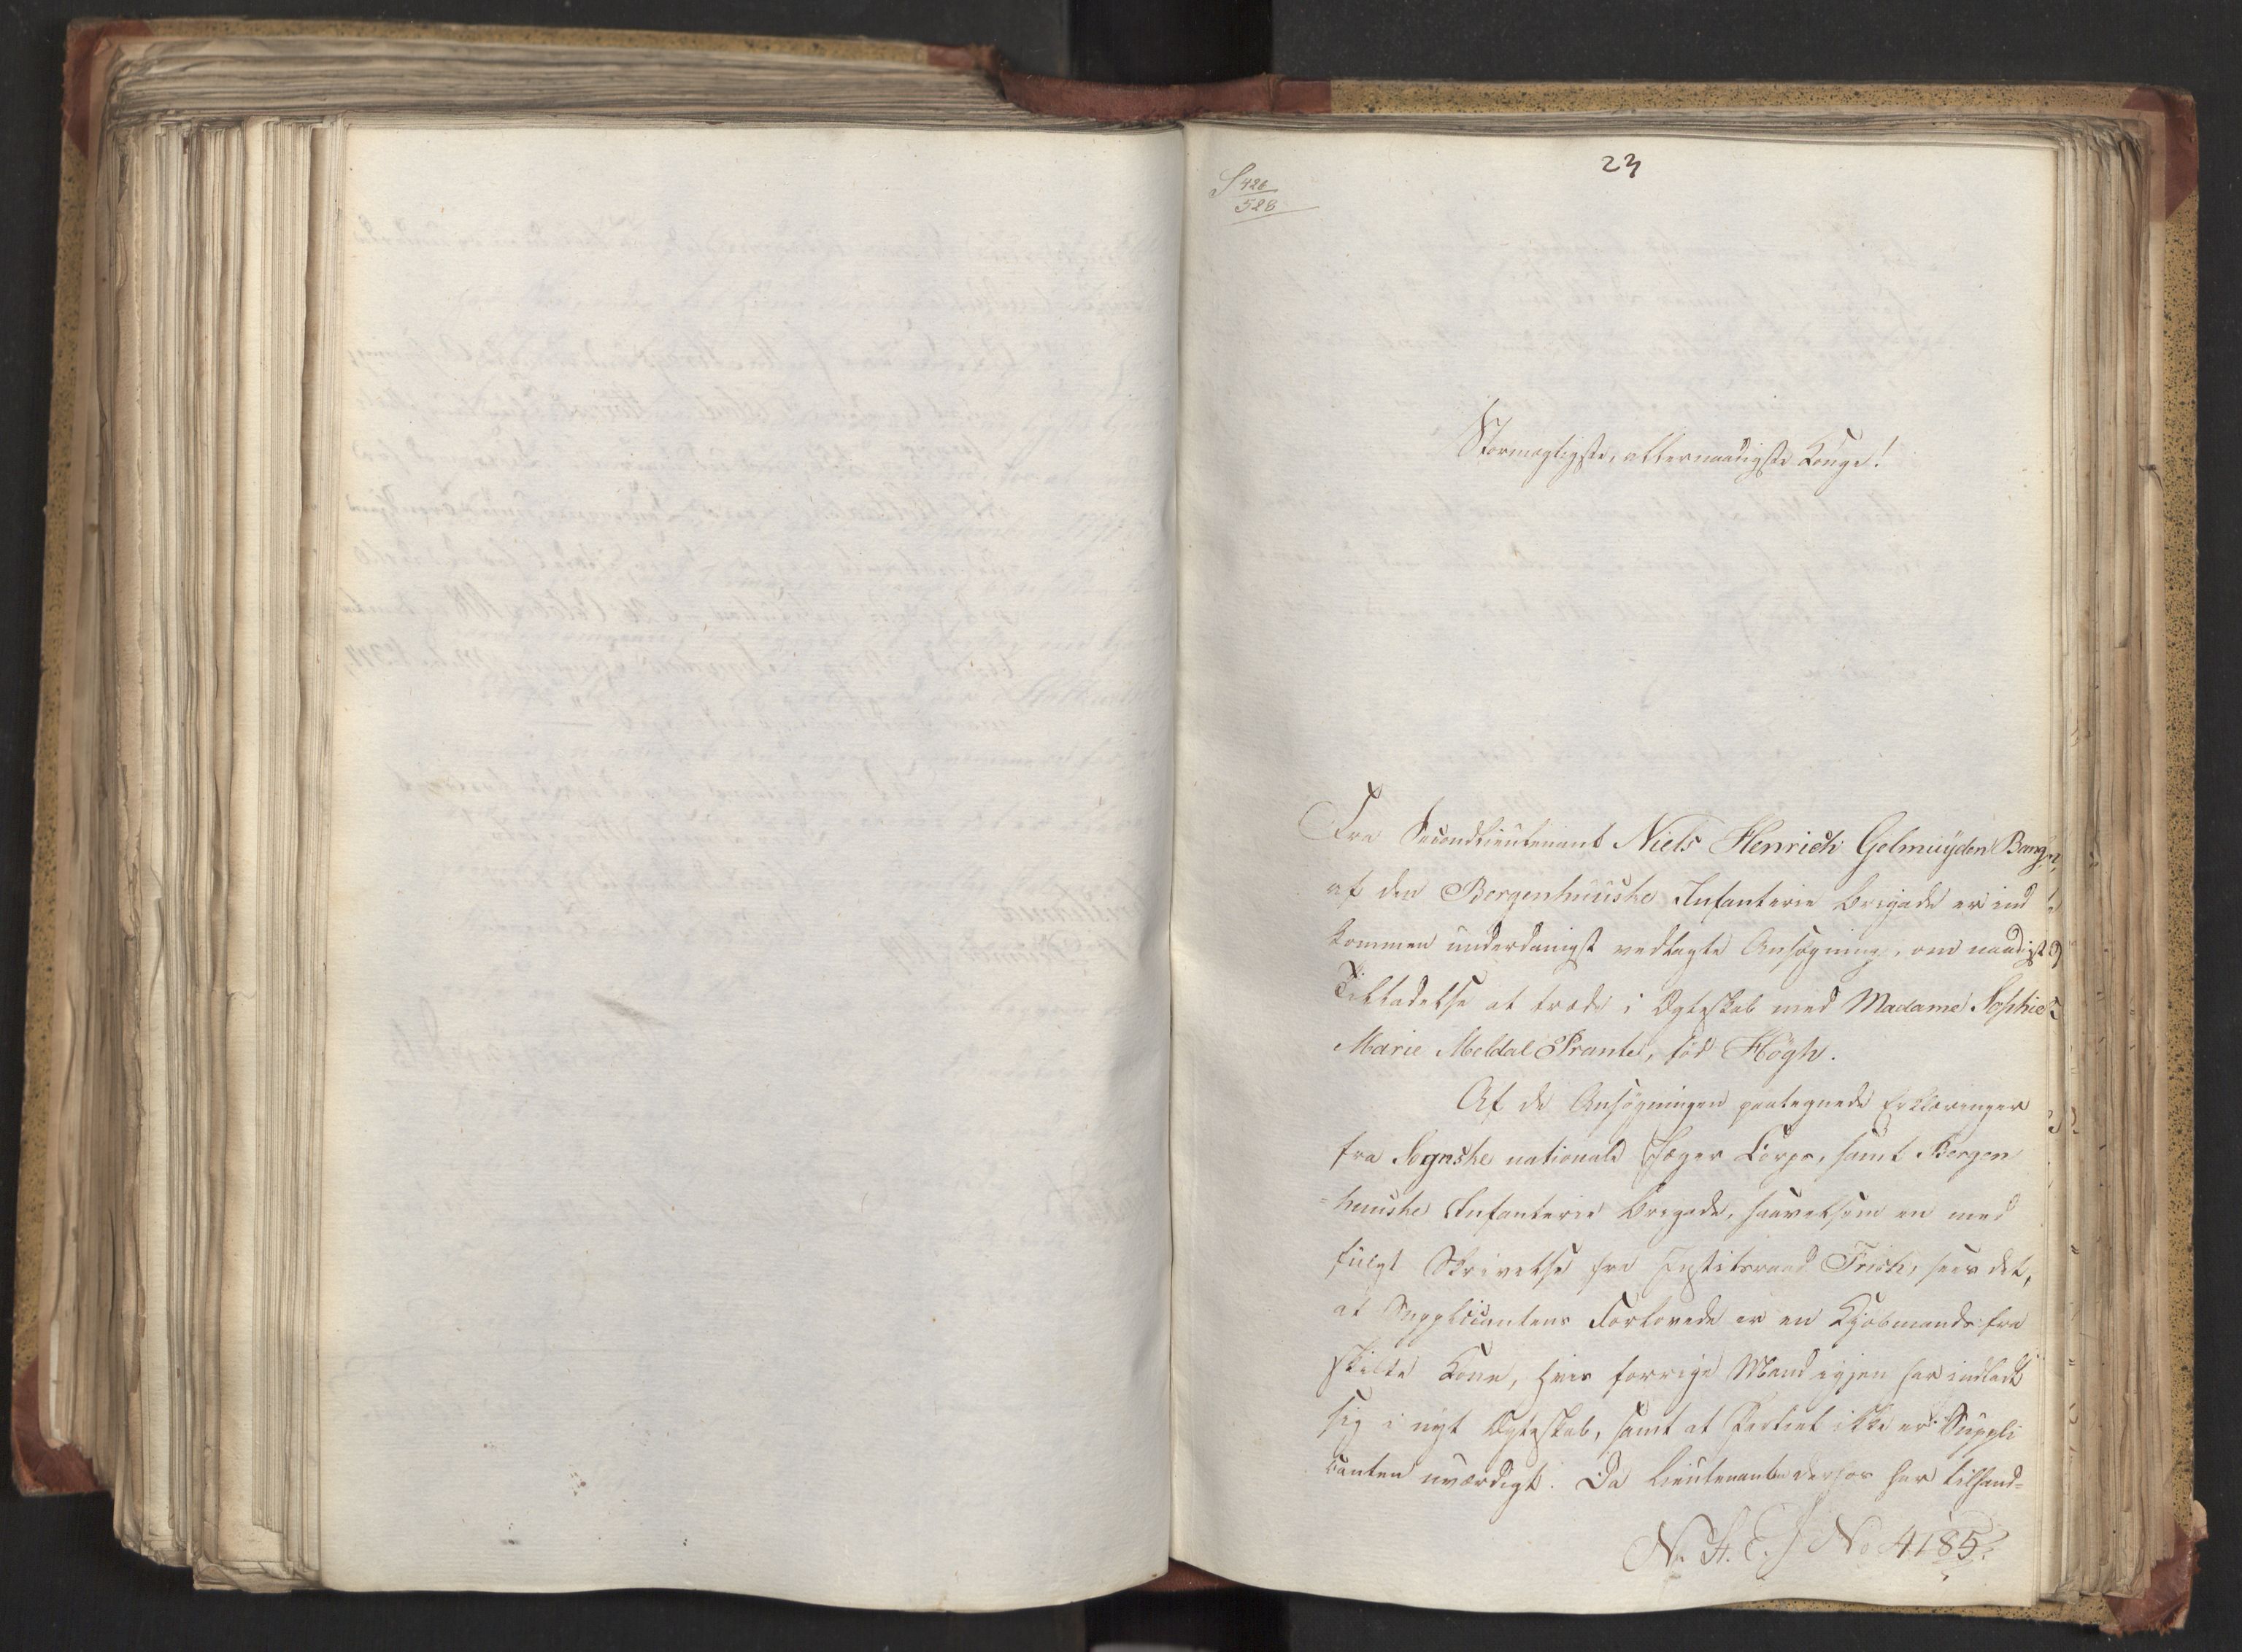 23
S 426
528
Stormægtigste, allernaadigste Konge!
Fra Secondlieutenant Niels Henrich Gelmuÿden Bang,
af den Bergenhuuske Infanterie Brigade er ind
kommen underdanigst vedlagte Ansøgning, om naadigst
Tilladelse at træde i Ægteskab med Madame Sophie
Marie Meldal Prante, fød Høgh.
Af de Ansøgningen paategnede Erklæringer
fra Sognske nationale Jæger Corps, samt Bergen
=huuske Infanterie Brigade, saavelsom en med
fulgt Skrivelse fra Justitsraad Frich, sees det,
at Supplicantens Forlovede er en Kjøbmands fra
skilte Kone, hvis forrige Mand igjen har indladt
sig i nyt Ægteskab, samt at Partiet ikke er Suppli
canten uværdigt. Da Lieutenanten derhos har tilsend=
N. A. E. J No 4185.